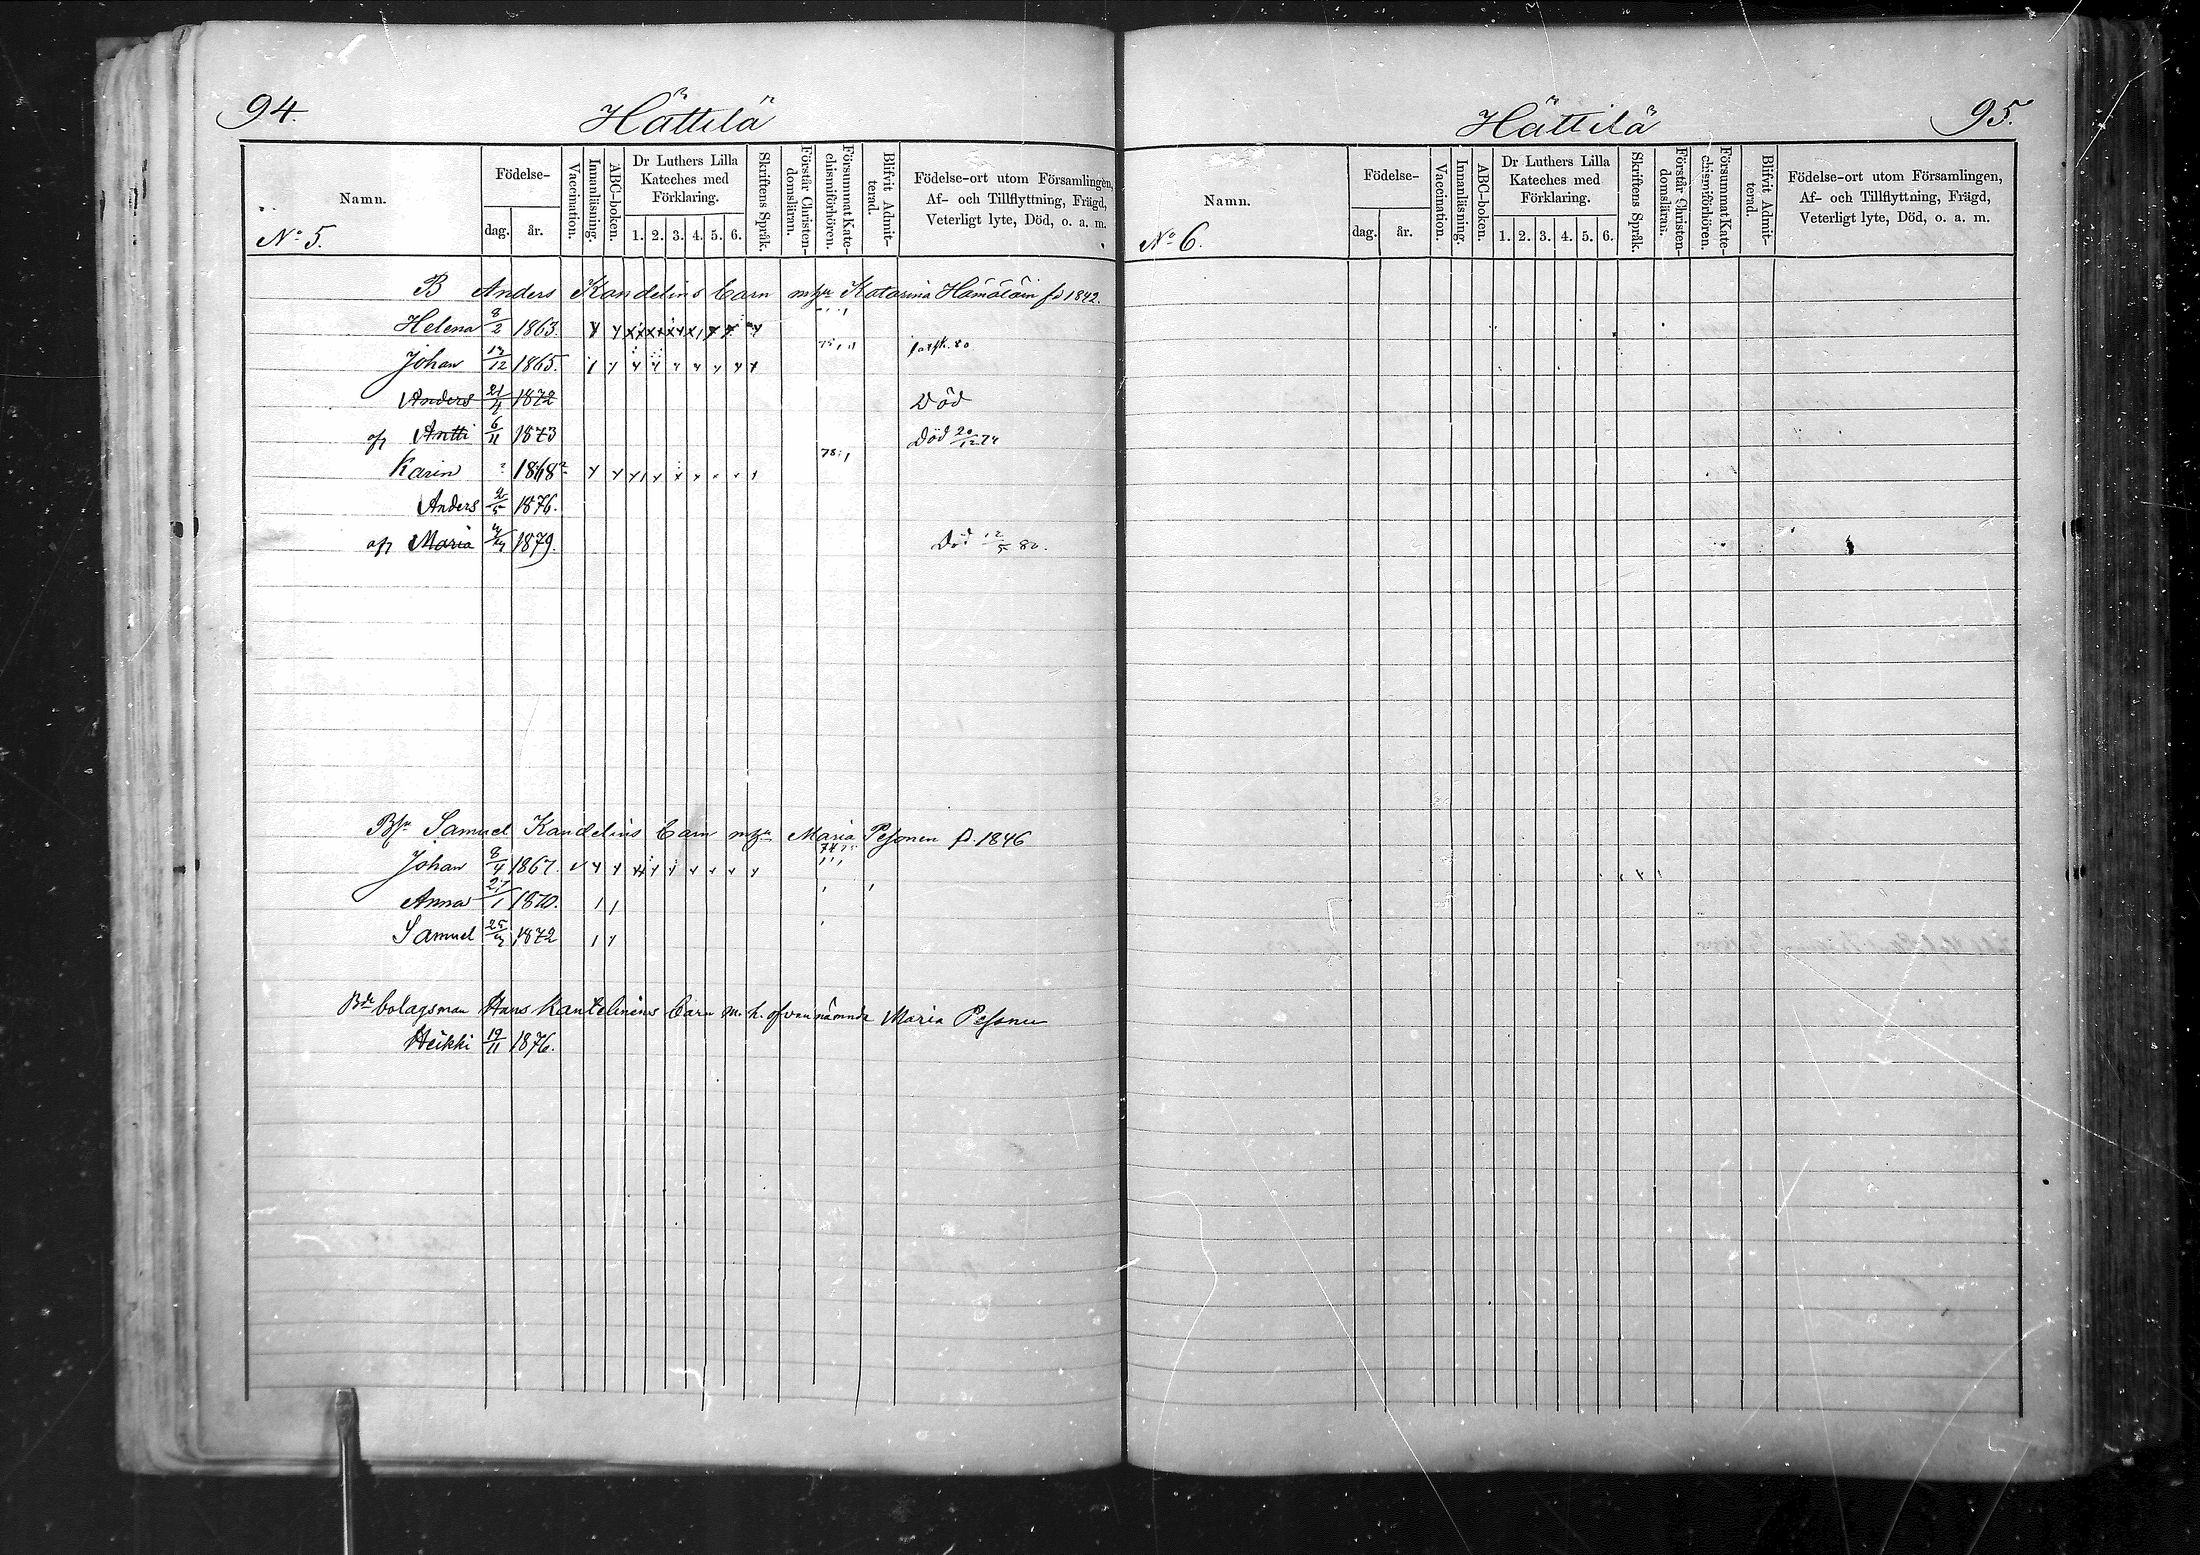 94.
Hättilä
Namn.
Födelse-
dag.
år.
Vaccination.
Innanläsning.
ABC-boken.
Dr Luthers Lilla
Kateches med
Förklaring.
1. 2. 3. 4. 5. 6.
Skriftens Språk.
Förstår Christen-
domsläran.
Försummat Kate-
chismiförhören.
Blifvit Admit-
terad.
Födelse-ort utom Församlingen,
Af- och Tillflyttning, Frägd,
Veterligt lyte, Död, o. a. m.
No 5.
B Anders Kandelins barn m hu Katarina fd 1842.
Helena 8/2 1863.
Johan 13/12 1865.
Anders 21/4 1872 Död
Antti 6/11 1873 Död 20/12 74
Karin 1868
Anders 1876.
Maria 1879. Död 12/5 80.
Samuel Kandelins barn m hu Maria Pesonen fd. 1846
Johan 8/4 1867.
Anna 27/1 1870.
Samuel 1872
Bde bolagsman Hans Kantelinens barn m. h. ofvannämnde Maria Pesonen
Heikki 19/11 1876.
Hättilä
95.
Namn.
Födelse-
dag.
år.
Vaccination.
Innanläsning.
ABC-boken.
Dr Luthers Lilla
Kateches med
Förklaring.
1. 2. 3. 4. 5. 6.
Skriftens Språk.
Förstår Christen-
domslärani.
Försummat Kate-
chismiförhören.
Blifvit Admit-
terad.
Födelse-ort utom Församlingen,
Af- och Tillflyttning, Frägd,
Veterligt lyte, Död, o. a. m.
No 6.